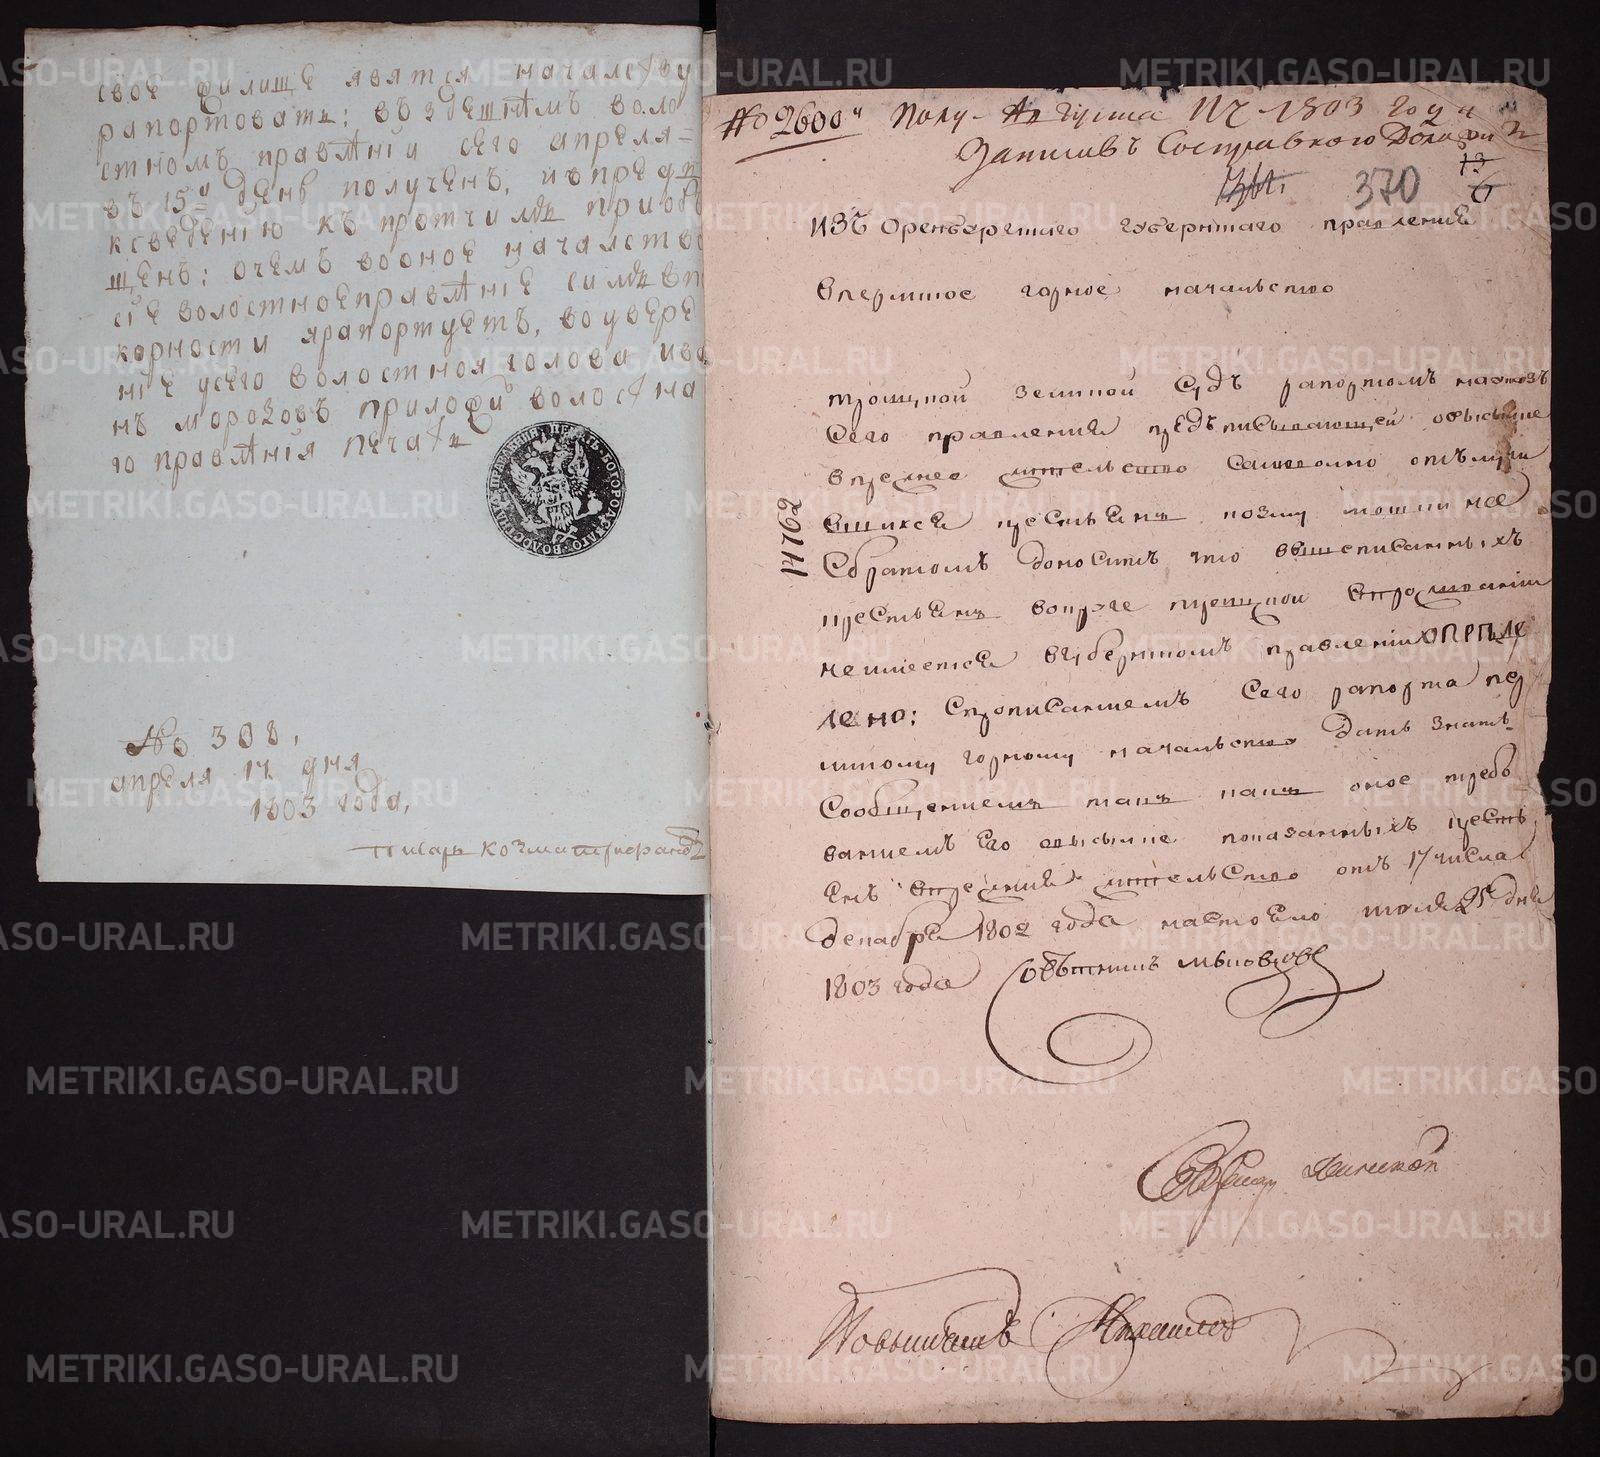 свое жилище явятся началству
рапортовать; въ здешнѣмъ воло
стномъ правлѣнiи сего апреля=
въ 15й день полученъ, и въ пред
к сведению къ протчимъ приоб
щенъ; о чемъ во оное началство
сiе волостное правлѣнiе симъ вп
корности и рапортуетъ, во увере
нiе у сего волостной голова ива
нъ морозовъ приложилъ волостна
го правлѣнiя печать
№ 308,
апреля 17 дня
1803 года,
писарь козма
№ 2600й Полу. Августа 17 1803 года
Записавъ Со справкою Доложить
370
изъ Оренбургскаго губернскаго правления
в пермское горное начальство
11762
троицкой земской Судъ рапортомъ на указъ
Сего правления предписывающей о высылке
в прежнее жительство самовольно отълучи
вшихся крестьянъ козмы тошкина
С братомъ доноситъ что вышеписанныхъ
крестьянъ в округе троицкой в проживанiи
не имеется в губернскомъ правленiи опреде
лено; С прописаниемъ Сего рапорта пер
мскому горному начальству дать знать
Сообщениемъ такъ какъ оное требо
ваниемъ его о высылке показанныхъ крестья
янъ в прежнее жительство отъ 17 числа
декабря 1802 года настояло июля 25 дня
1803 года Советникъ
Секретарь
Повытчикъ Михайлов